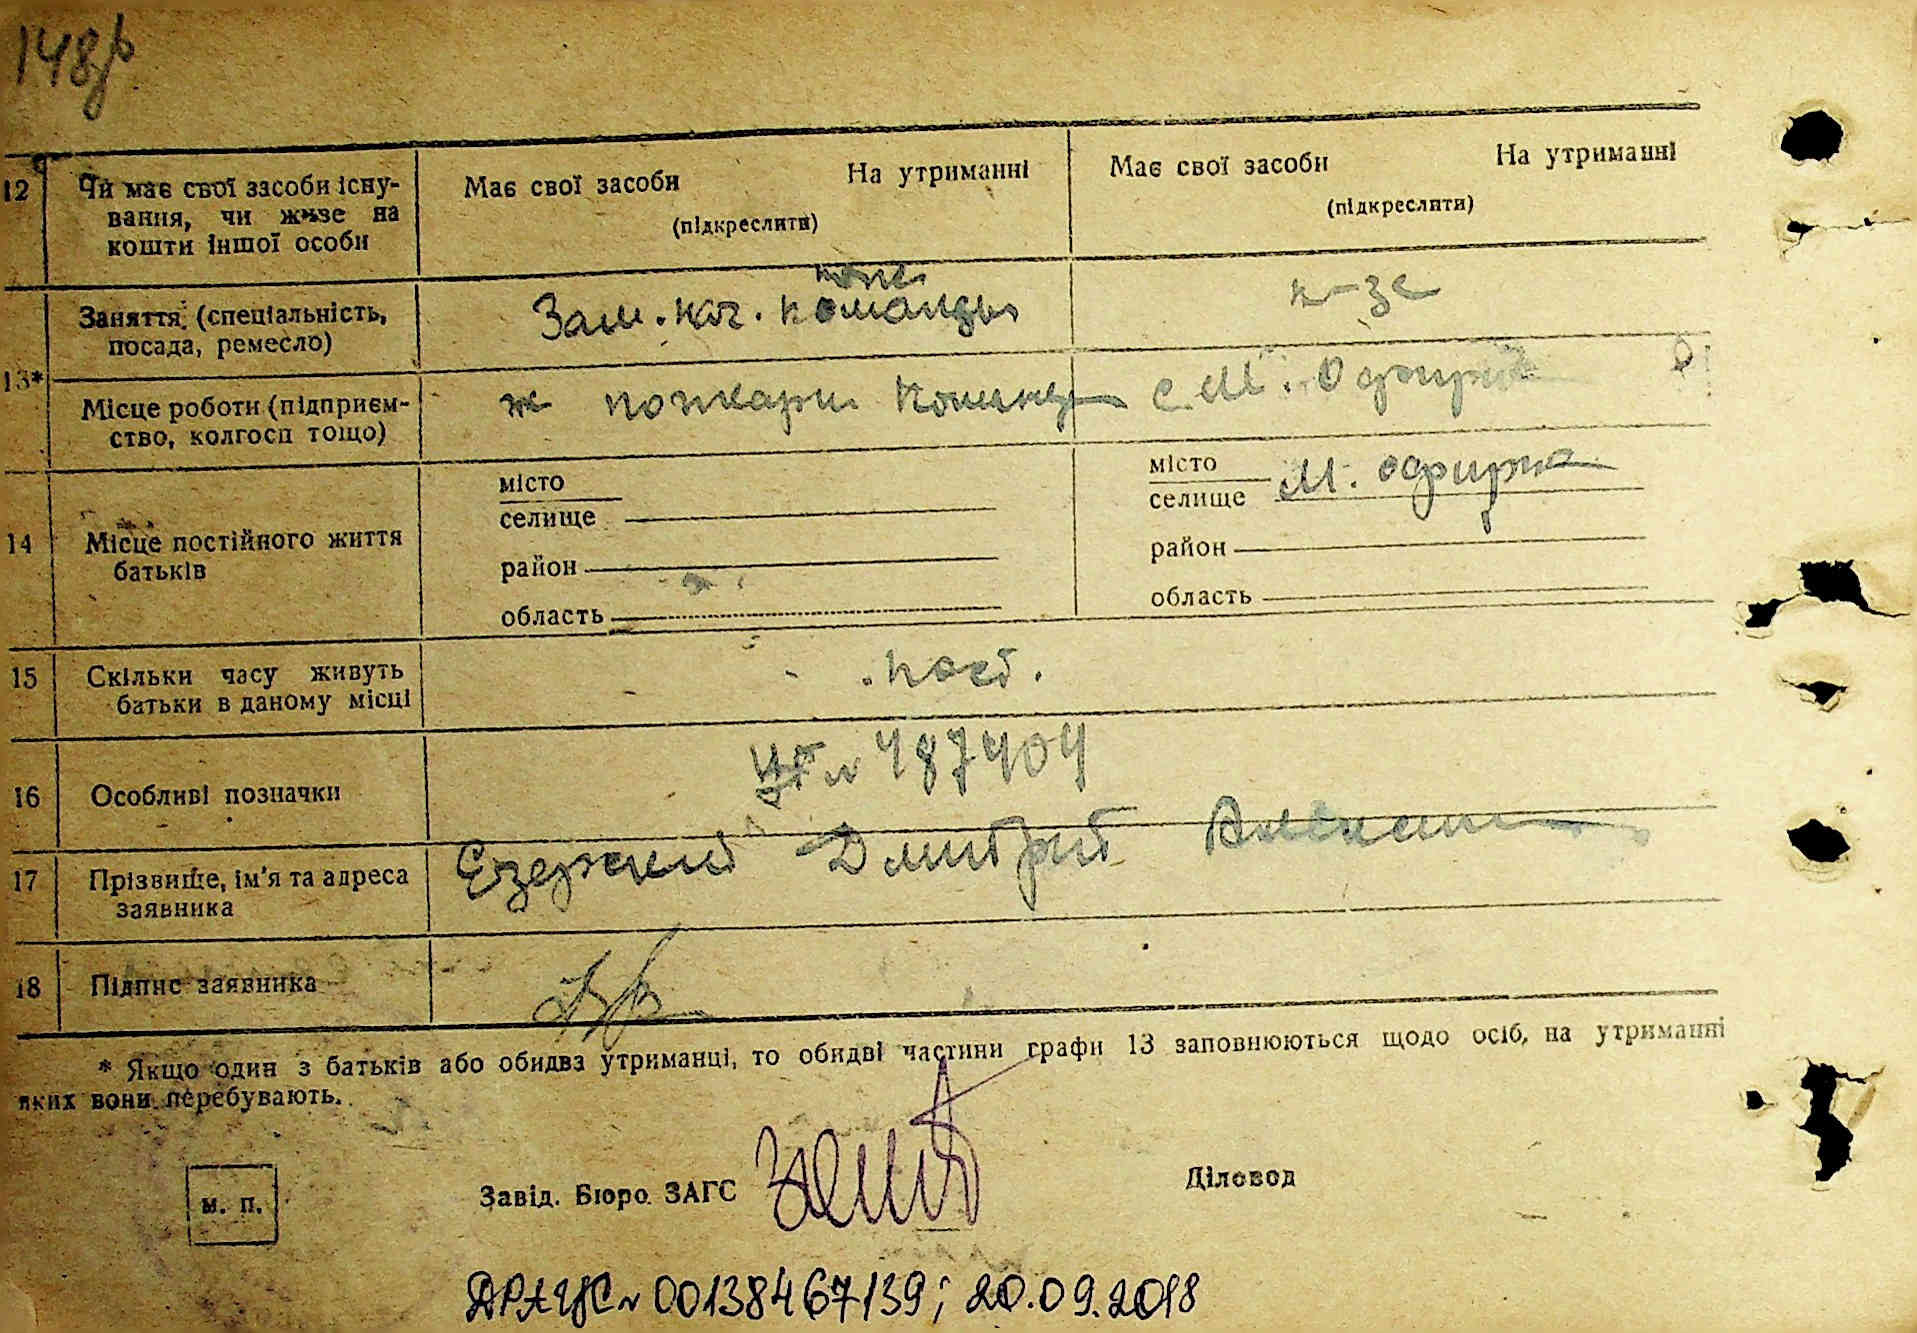 148
12 Чи має свої засоби існу-
вання, чи живе на
кошти іншої особи
Має свої засоби На утриманні
(підкреслити)
Має свої засоби На утриманні
(підкреслити)
13*
Заняття (спеціальність,
посада, ремесло)
Зам. нач. команды
к-зе
Місце роботи (підприєм-
ство, колгосп тощо)
ж пожарн. команд
с. М. Офирна
14 Місце постійного життя
батьків
місто
селище
район
область
місто
селище М. офирна
район
область
15 Скільки часу живуть
батьки в даному місці
пост.
16 Особливі позначки
№ 487404
17 Прізвище, ім'я та адреса
заявника
Езерский Дмитрий
18 Підпис заявника
* Якщо один з батьків або обидва утриманці, то обидві частини графи 13 заповнюються щодо осіб, на утриманні
яких вони перебувають.
м. п.
Завід. Бюро ЗАГС
Діловод
ДРАЦС № 00138467139; 20.09.2018